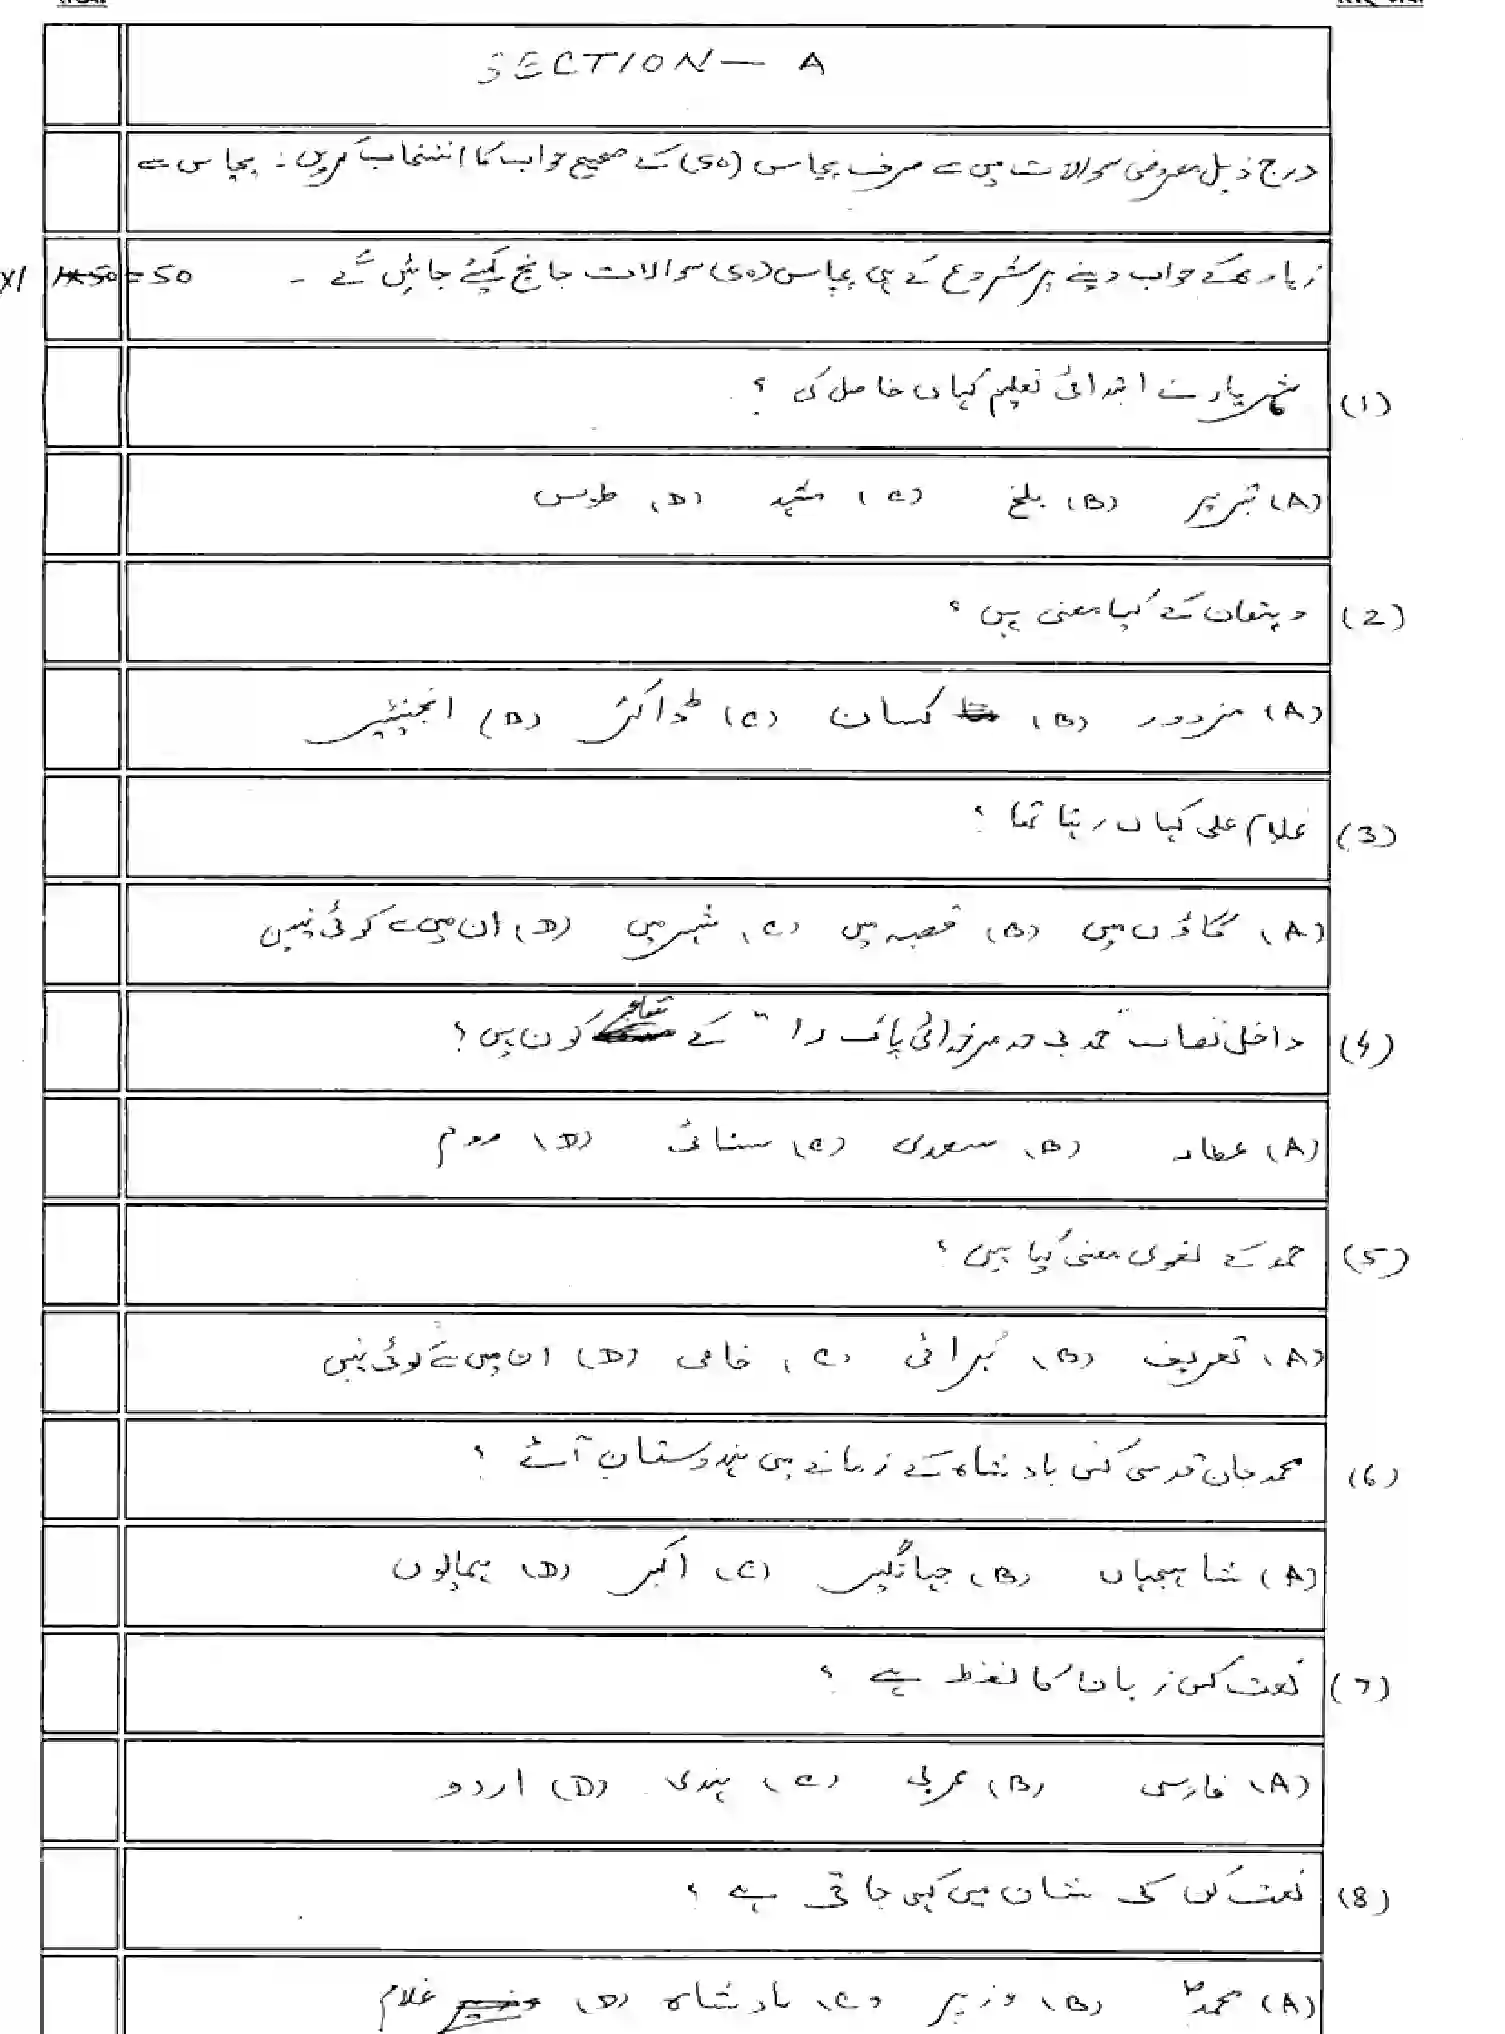 SECTION – A
درج ذیل معروضی سوالات میں سے صرف پچاس (50) کے صحیح جواب کا انتخاب کریں۔ پچاس سے
زیادہ کے جواب دینے پر شروع کے ہی پچاس (50) سوالات جانچ کیئے جائیں گے ۔ 50 = 50
(1) شہریار نے ابتدائی تعلیم کہاں حاصل کی ؟
(A) تبریز (B) بلخ (C) مشہد (D) طوس
(2) دہقان کے کیا معنی ہیں ؟
(A) مزدور (B) کسان (C) ڈاکٹر (D) انجینئیر
(3) غلام علی کہاں رہتا تھا ؟
(A) گاؤں میں (B) قصبہ میں (C) شہر میں (D) ان میں سے کوئی نہیں
(4) داخل نصاب "حمد بی حد مر خدائی پاک را" کے شاعر کون ہیں ؟
(A) عطار (B) سعدی (C) سنائی (D) روم
(5) حمد کے لغوی معنی کیا ہیں ؟
(A) تعریف (B) بُرائی (C) خامی (D) ان میں سے کوئی نہیں
(6) محمد جان قدسی کس بادشاہ کے زمانے میں ہندوستان آئے ؟
(A) شاہجہاں (B) جہانگیر (C) اکبر (D) ہمایوں
(7) نعت کس زبان کا لفظ ہے ؟
(A) فارسی (B) عربی (C) ہندی (D) اردو
(8) نعت کس کی شان میں کہی جاتی ہے ؟
(A) محمدؐ (B) وزیر (C) بادشاہ (D) غلام